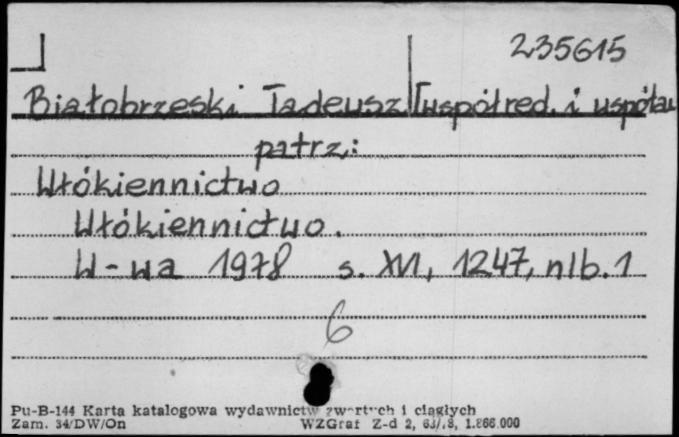 235615
Białobrzeski Tadeusz [współred. i współau
patrz:
Włókiennictwo
Włókiennictwo.
W-wa 1978 s. XVI, 1247, nlb. 1
6
Pu-B-144 Karta katalogowa wydawnictw zwartych i ciągłych
Zam. 34/DW/On WZGraf Z-d 2, 1.866.000